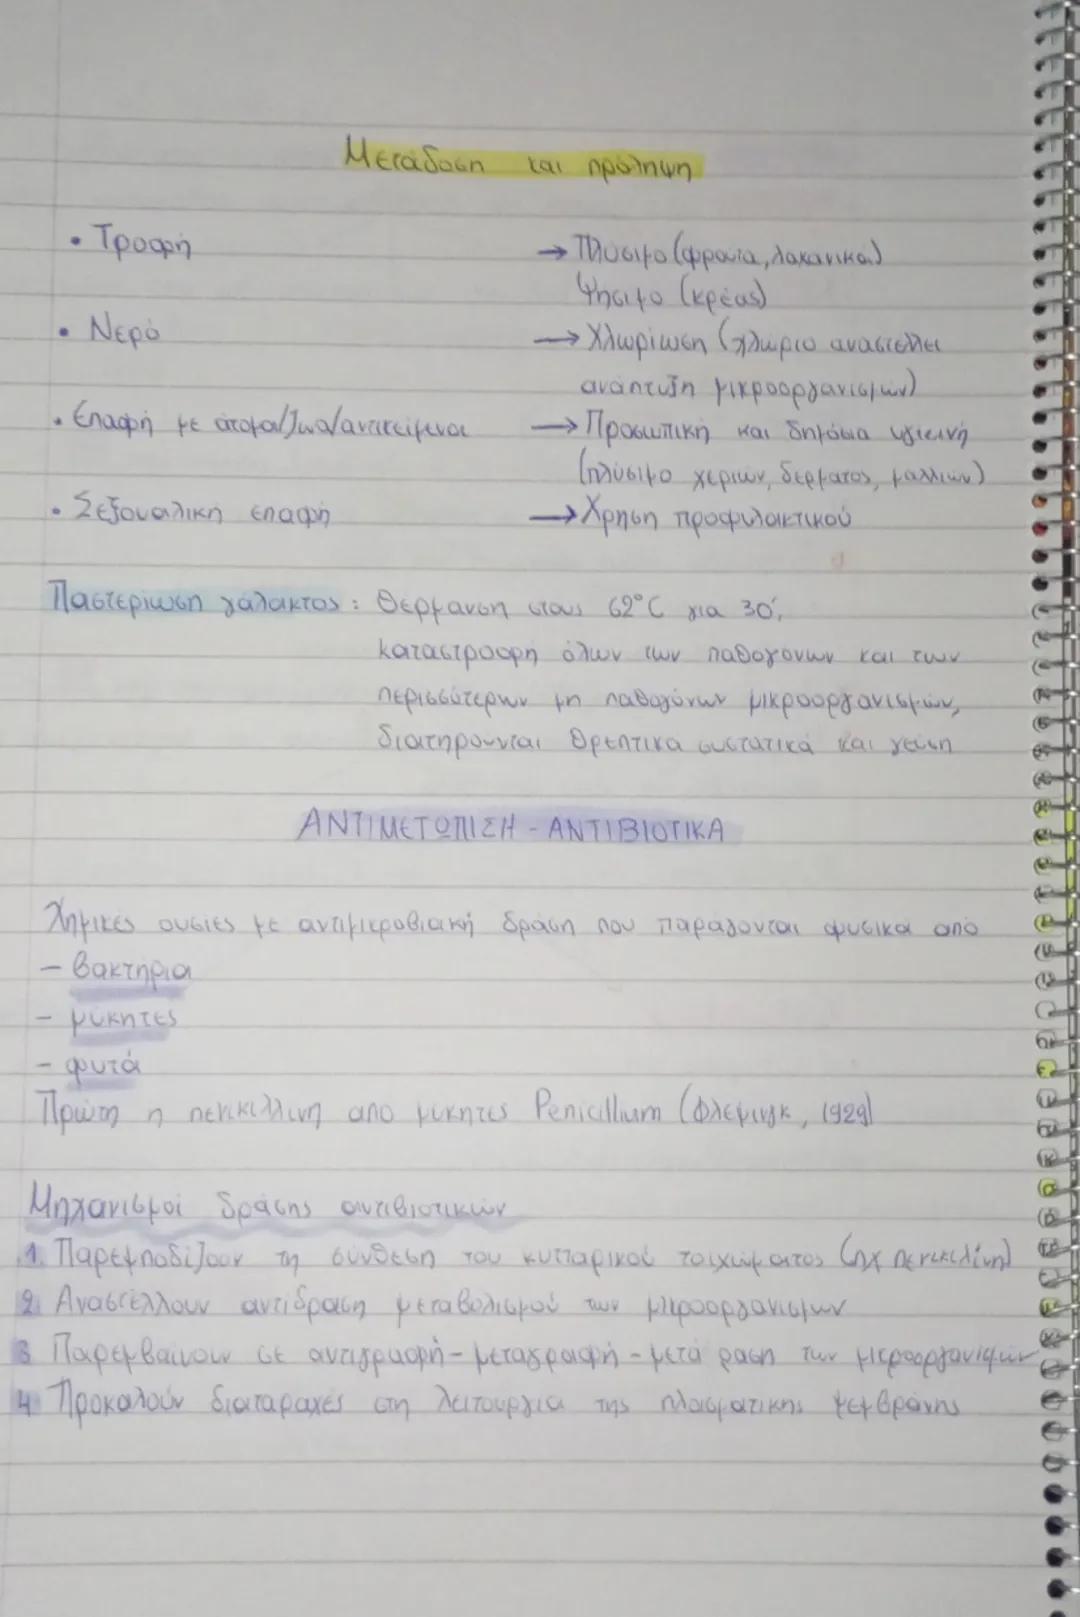 Μετάδοση και πρόληψη
• Τροφή → Πλύσιμο (φρούτα, λαχανικά)
Ψήσιμο (κρέας)
• Νερό → Χλωρίωση (χλώριο αναστέλλει
ανάπτυξη μικροοργανισμών)
• Επαφή με άτομα/ζωα/αντικείμενα → Προσωπική και δημόσια υγιεινή
(πλύσιμο χεριών, δέρματος, μαλλιών)
• Σεξουαλική επαφή → Χρήση προφυλακτικού
Παστερίωση γάλακτος: Θέρμανση στους 62°C για 30',
καταστροφή όλων των παθογόνων και των
περισσότερων μη παθογόνων μικροοργανισμών,
διατηρούνται θρεπτικά συστατικά και γεύση
ΑΝΤΙΜΕΤΩΠΙΣΗ - ΑΝΤΙΒΙΟΤΙΚΑ
Χημικές ουσίες με αντιμικροβιακή δράση που παράγονται φυσικά από
- βακτήρια
- μύκητες
- φυτά
Πρώτη η πενικιλλίνη από μύκητες Penicillium (Φλέμινγκ, 1929)
Μηχανισμοί δράσης αντιβιοτικών
1. Παρεμποδίζουν τη σύνθεση του κυτταρικού τοιχώματος (πχ πενικιλίνη)
2. Αναστέλλουν αντίδραση μεταβολισμού των μικροοργανισμων
3 Παρεμβαίνουν σε αντιγραφή - μεταγραφή - μετάφραση των μικροοργανισμών
4 Προκαλούν διαταραχές στη λειτουργία της πλασματικής μεμβράνης